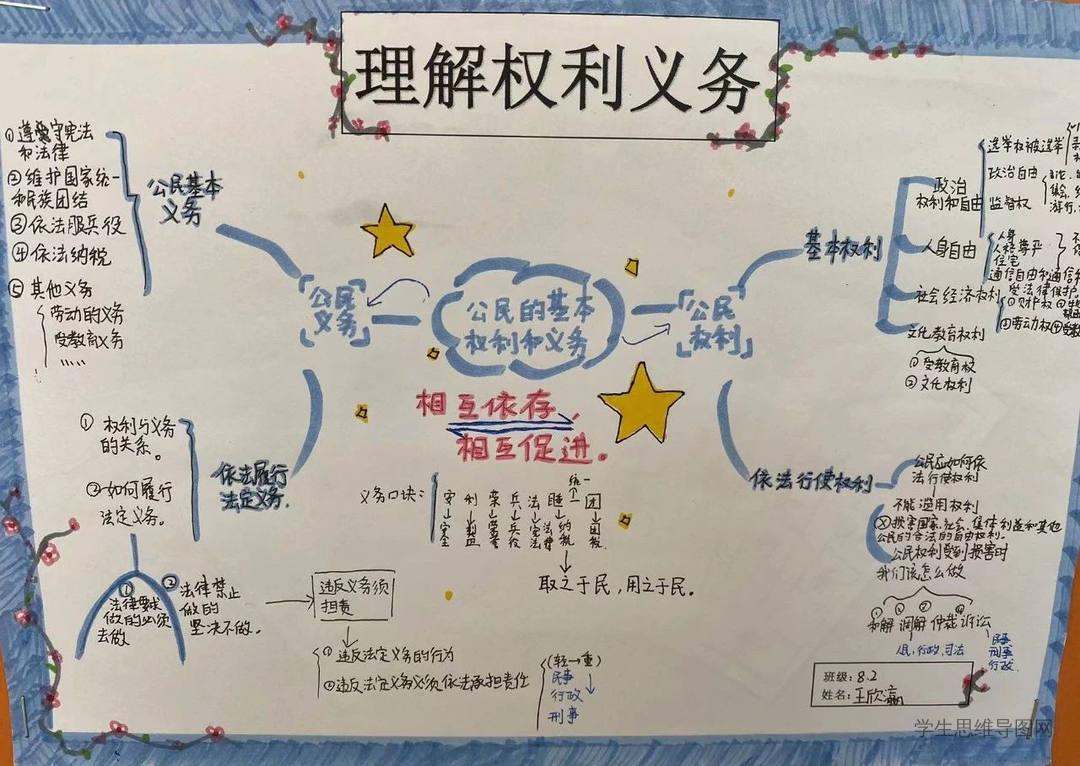 理解权利义务
公民的基本
权利和义务
相互依存,
相互促进。
公民
义务
公民基本
义务
①遵守宪法
和法律
②维护国家统一
和民族团结
③依法服兵役
④依法纳税
⑤其他义务
劳动的义务
受教育义务
依法履行
法定义务.
①权利与义务
的关系。
②如何履行
法定义务。
①
法律要求
做的必须
去做
②法律禁止
做的
坚决不做。
违反义务须
担责
①违反法定义务的行为
②违反法定义务必须依法承担责任
(轻→重)
民事
行政
刑事
义务口诀:
取之于民,用之于民。
公民
权利
基本权利
政治
权利和自由
选举权被选举
政治自由
监督权
人身自由
人身
人格尊严
住宅
社会经济权利
文化教育权利
①受教育权
②文化权利
依法行使权利
公民应如何依
法行使权利
不能滥用权利
损害国家、社会、集体利益和其他
公民的合法的自由权利.
公民权利受到损害时
我们该怎么做
和解 调解 仲裁 诉讼
民事
刑事
行政
班级:8.2
姓名:王欣瀛
学生思维导图网